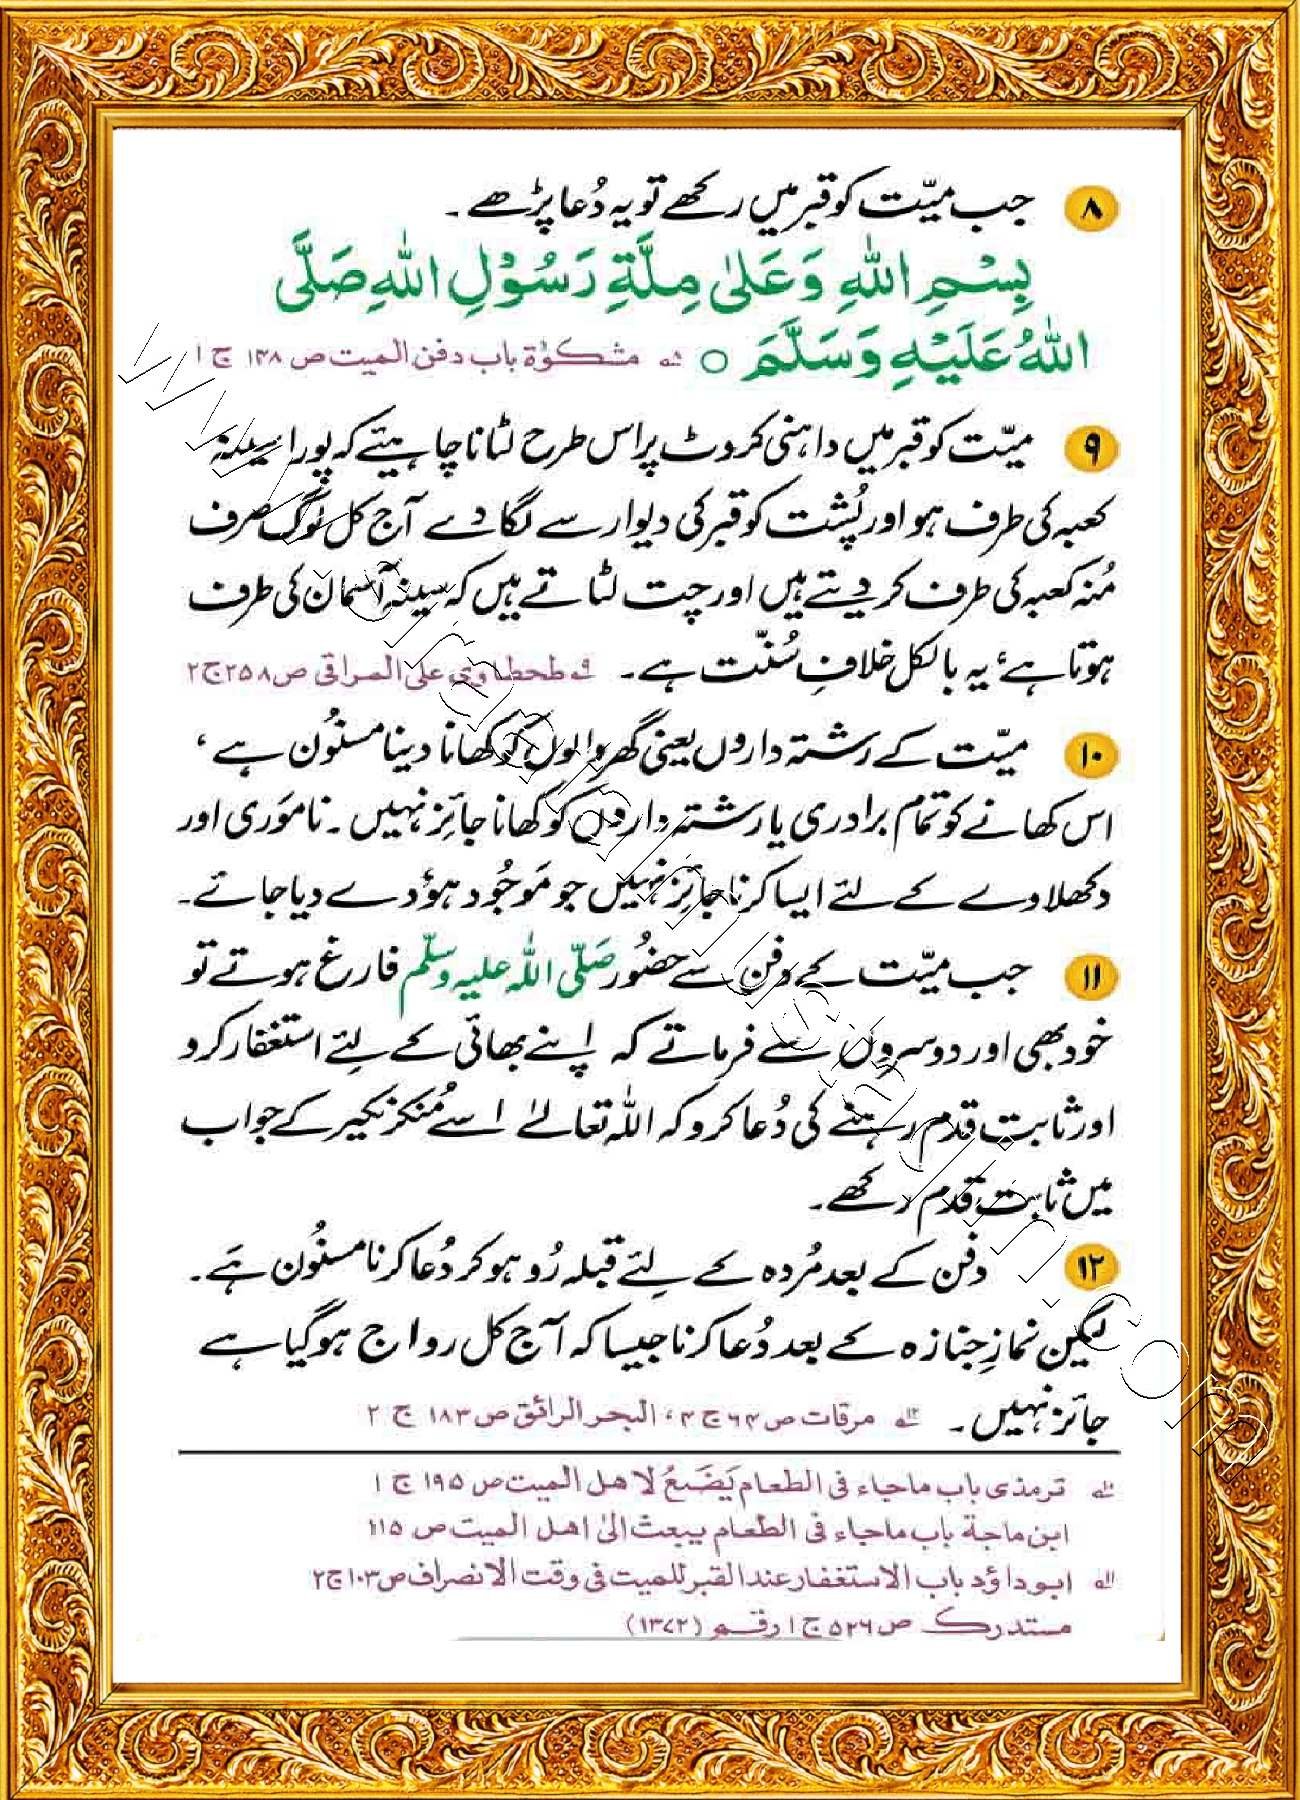 ۸ جب میّت کو قبر میں رکھے تو یہ دُعا پڑھے۔
بِسْمِ اللّٰهِ وَعَلٰى مِلَّةِ رَسُوْلِ اللّٰهِ صَلَّى
اللّٰهُ عَلَيْهِ وَسَلَّمَ ○ ۸؎ مشکوٰۃ باب دفن المیت ص ۱۴۸ ج ۱
۹ میّت کو قبر میں داہنی کروٹ پر اس طرح لٹانا چاہیئے کہ پورا سینہ
کعبہ کی طرف ہو اور پُشت کو قبر کی دیوار سے لگا دے آج کل لوگ صرف
مُنہ کعبہ کی طرف کر دیتے ہیں اور چت لٹاتے ہیں کہ سینہ آسمان کی طرف
ہوتا ہے، یہ بالکل خلافِ سُنّت ہے۔ ۹؎ طحطاوی علی المراقی ص ۲۵۸ ج ۲
۱۰ میّت کے رشتہ داروں یعنی گھر والوں کو کھانا دینا مسنُون ہے،
اس کھانے کو تمام برادری یا رشتہ داروں کو کھانا جائز نہیں۔ نامَوری اور
دکھلاوے کے لئے ایسا کرنا جائز نہیں جو مَوجُود ہو دے دیا جائے۔
۱۱ جب میّت کے دفن سے حضُور صَلّی اللہ علیہ وسلّم فارغ ہوتے تو
خود بھی اور دوسروں سے فرماتے کہ اپنے بھائی کے لِئے استغفار کرو
اور ثابت قدم رہنے کی دُعا کرو کہ اللہ تعالےٰ اسے مُنکر نکیر کے جواب
میں ثابت قدم رکھے۔
۱۲ دفن کے بعد مُردہ کے لِئے قبلہ رُو ہو کر دُعا کرنا مسنُون ہَے۔
لیکن نمازِ جنازہ کے بعد دُعا کرنا جیسا کہ آج کل رواج ہو گیا ہے
جائز نہیں۔ ۱۲؎ مرقات ص ۶۴ ج ۴، البحر الرائق ص ۱۸۳ ج ۲
۱۰؎ ترمذی باب ماجاء فی الطعام یَضَعُ لاھل المیت ص ۱۹۵ ج ۱
ابن ماجۃ باب ماجاء فی الطعام یبعث الیٰ اھل المیت ص ۱۱۵
۱۱؎ ابوداؤد باب الاستغفار عند القبر للمیت فی وقت الانصراف ص ۱۰۳ ج ۲
مستدرک ص ۵۲۶ ج ۱ رقم (۱۳۷۲)